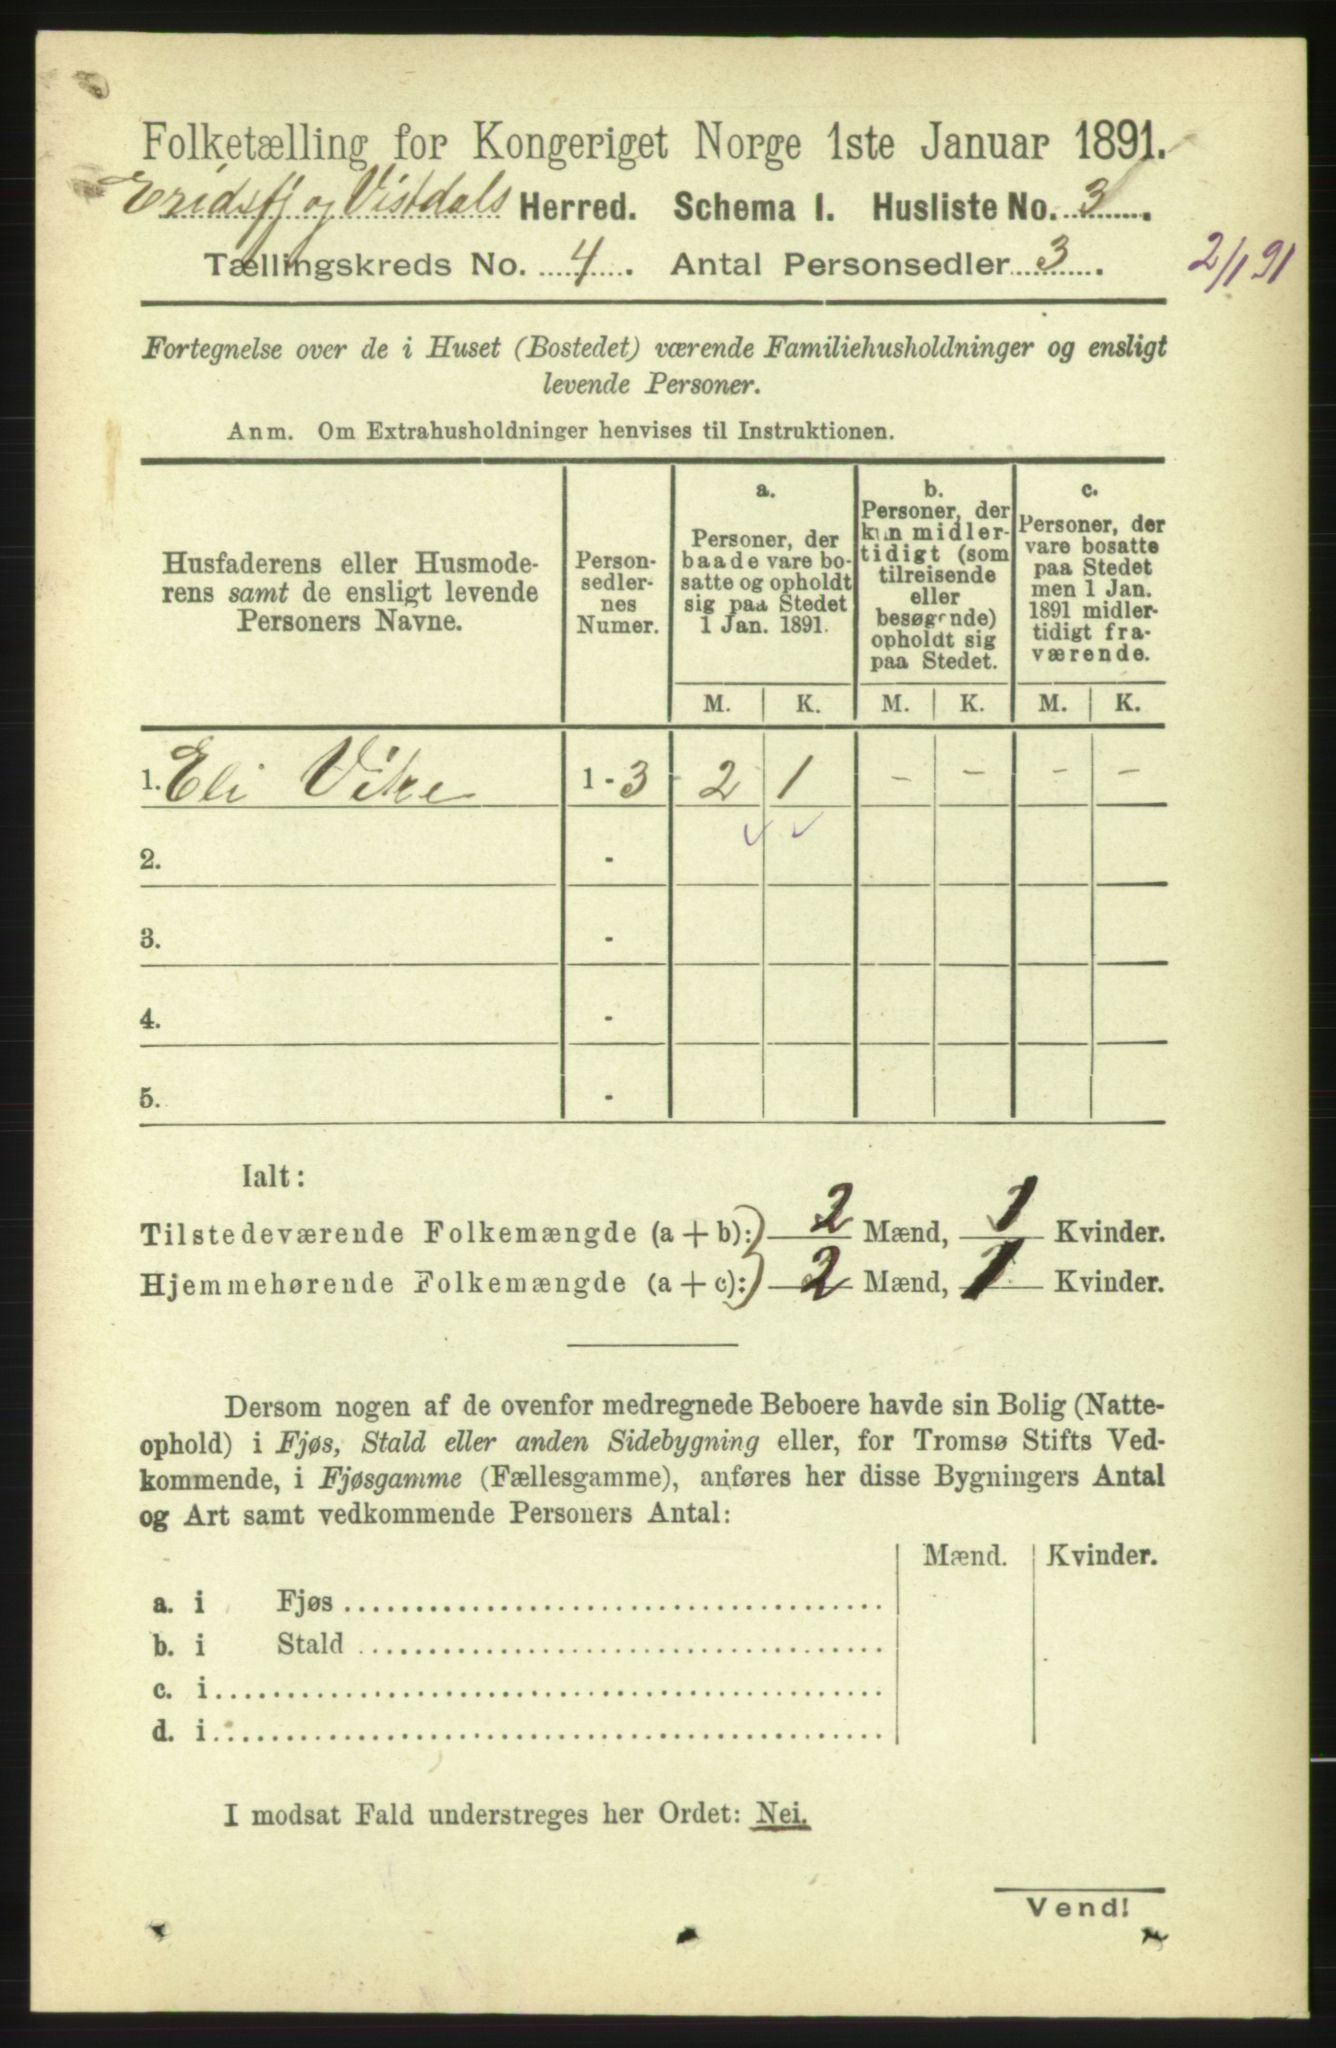 Folketælling for Kongeriget Norge 1ste Januar 1891.
Eridsfj og Vistdals Herred. Schema I. Husliste No. 3.
Tællingskreds No. 4. Antal Personsedler 3.
2/1 91
Fortegnelse over de i Huset (Bostedet) værende Familiehusholdninger og ensligt
levende Personer.
Anm. Om Extrahusholdninger henvises til Instruktionen.
Husfaderens eller Husmode-
rens samt de ensligt levende
Personers Navne.
Person-
sedler-
nes
Numer.
a.
Personer, der
baade vare bo-
satte og opholdt
sig paa Stedet
1 Jan. 1891.
b.
Personer, der
kun midler-
tidigt (som
tilreisende
eller
besøgende)
opholdt sig
paa Stedet.
c.
Personer, der
vare bosatte
paa Stedet
men 1 Jan.
1891 midler-
tidigt fra-
værende.
M. K. M. K. M. K.
1. Eli Vike 1 - 3 2 1 - - - -
2. -
3. -
4. -
5. -
Ialt:
Tilstedeværende Folkemængde (a + b): 2 Mænd, 1 Kvinder.
Hjemmehørende Folkemængde (a + c): 2 Mænd, 1 Kvinder.
Dersom nogen af de ovenfor medregnede Beboere havde sin Bolig (Natte-
ophold) i Fjøs, Stald eller anden Sidebygning eller, for Tromsø Stifts Ved-
kommende, i Fjøsgamme (Fællesgamme), anføres her disse Bygningers Antal
og Art samt vedkommende Personers Antal:
Mænd. Kvinder.
a. i Fjøs
b. i Stald
c. i
d. i
I modsat Fald understreges her Ordet: Nei.
Vend!